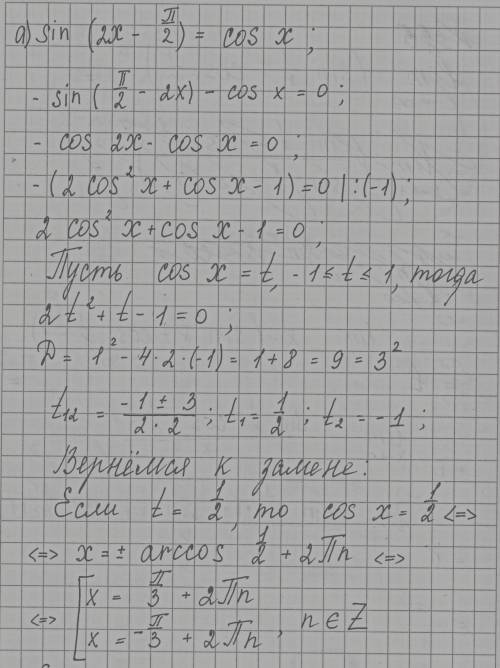 а) sin (2x - π/2) = cos x ;
- sin ( π/2 - 2x) - cos x = 0 ;
- cos 2x - cos x = 0 ;
- (2 cos² x + cos x - 1) = 0 | : (-1) ;
2 cos² x + cos x - 1 = 0 ;
Пусть cos x = t, -1 ≤ t ≤ 1, тогда
2t² + t - 1 = 0 ;
D = 1² - 4·2·(-1) = 1 + 8 = 9 = 3²
t₁₂ = (-1 ± 3)/(2·2) ; t₁ = 1/2 ; t₂ = -1 ;
Вернёмся к замене:
Если t = 1/2, то cos x = 1/2 <=>
<=> x = ± arccos 1/2 + 2πn <=>
<=> [ x = π/3 + 2πn
x = -π/3 + 2πn , n ∈ Z